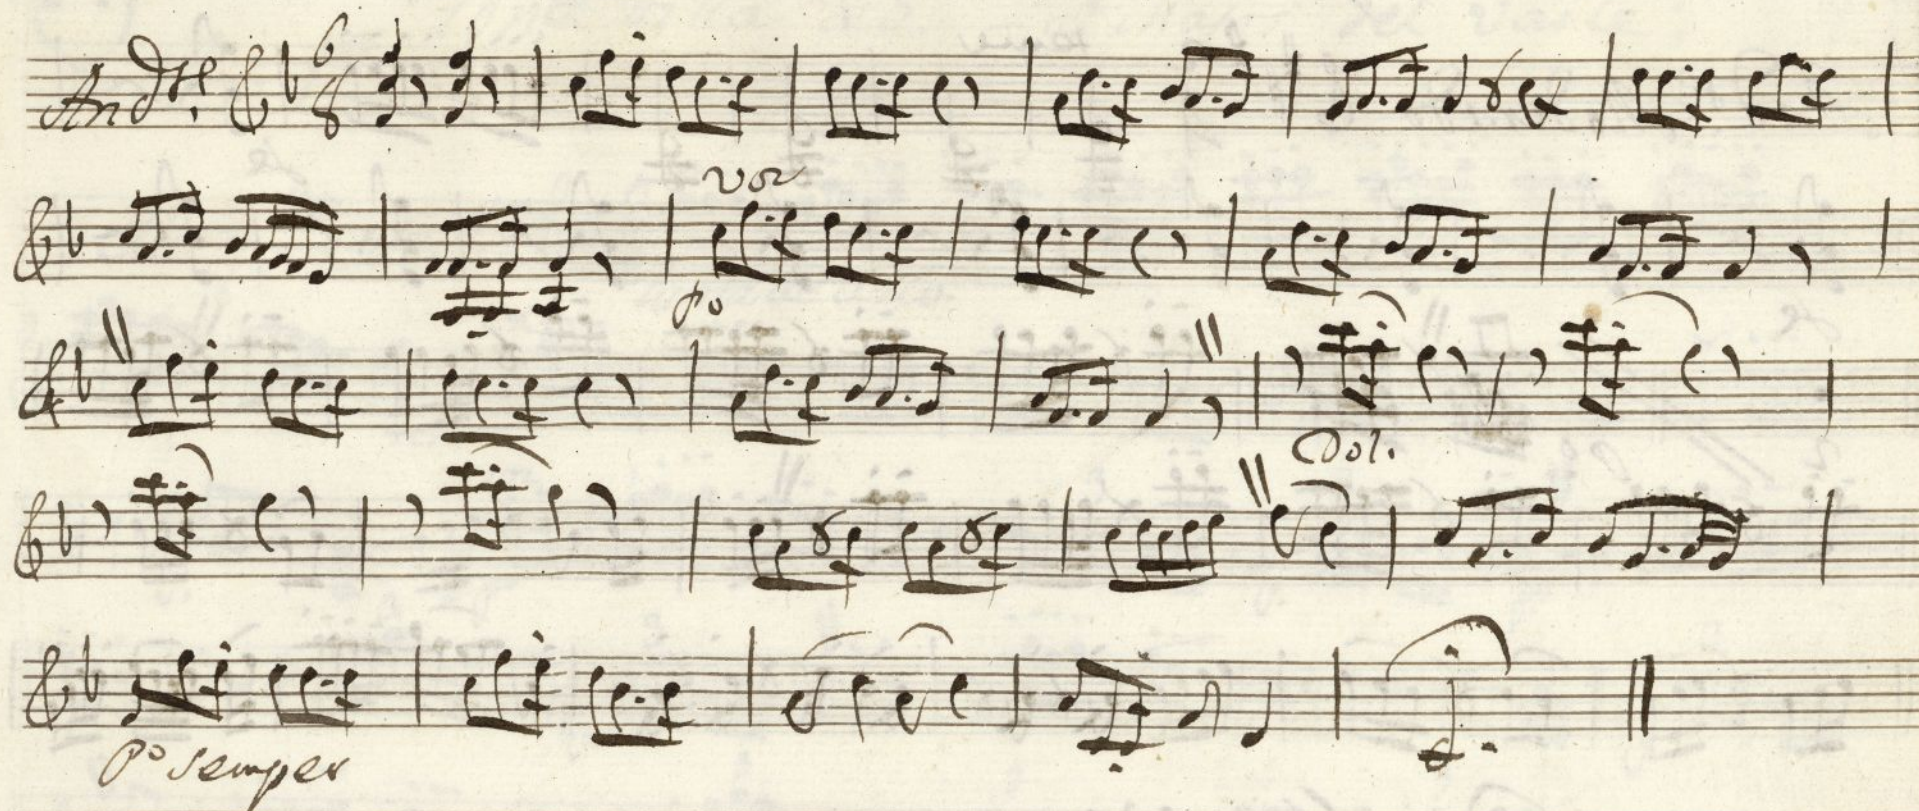 And.te 6 8
voz
po
Dol.
po semper